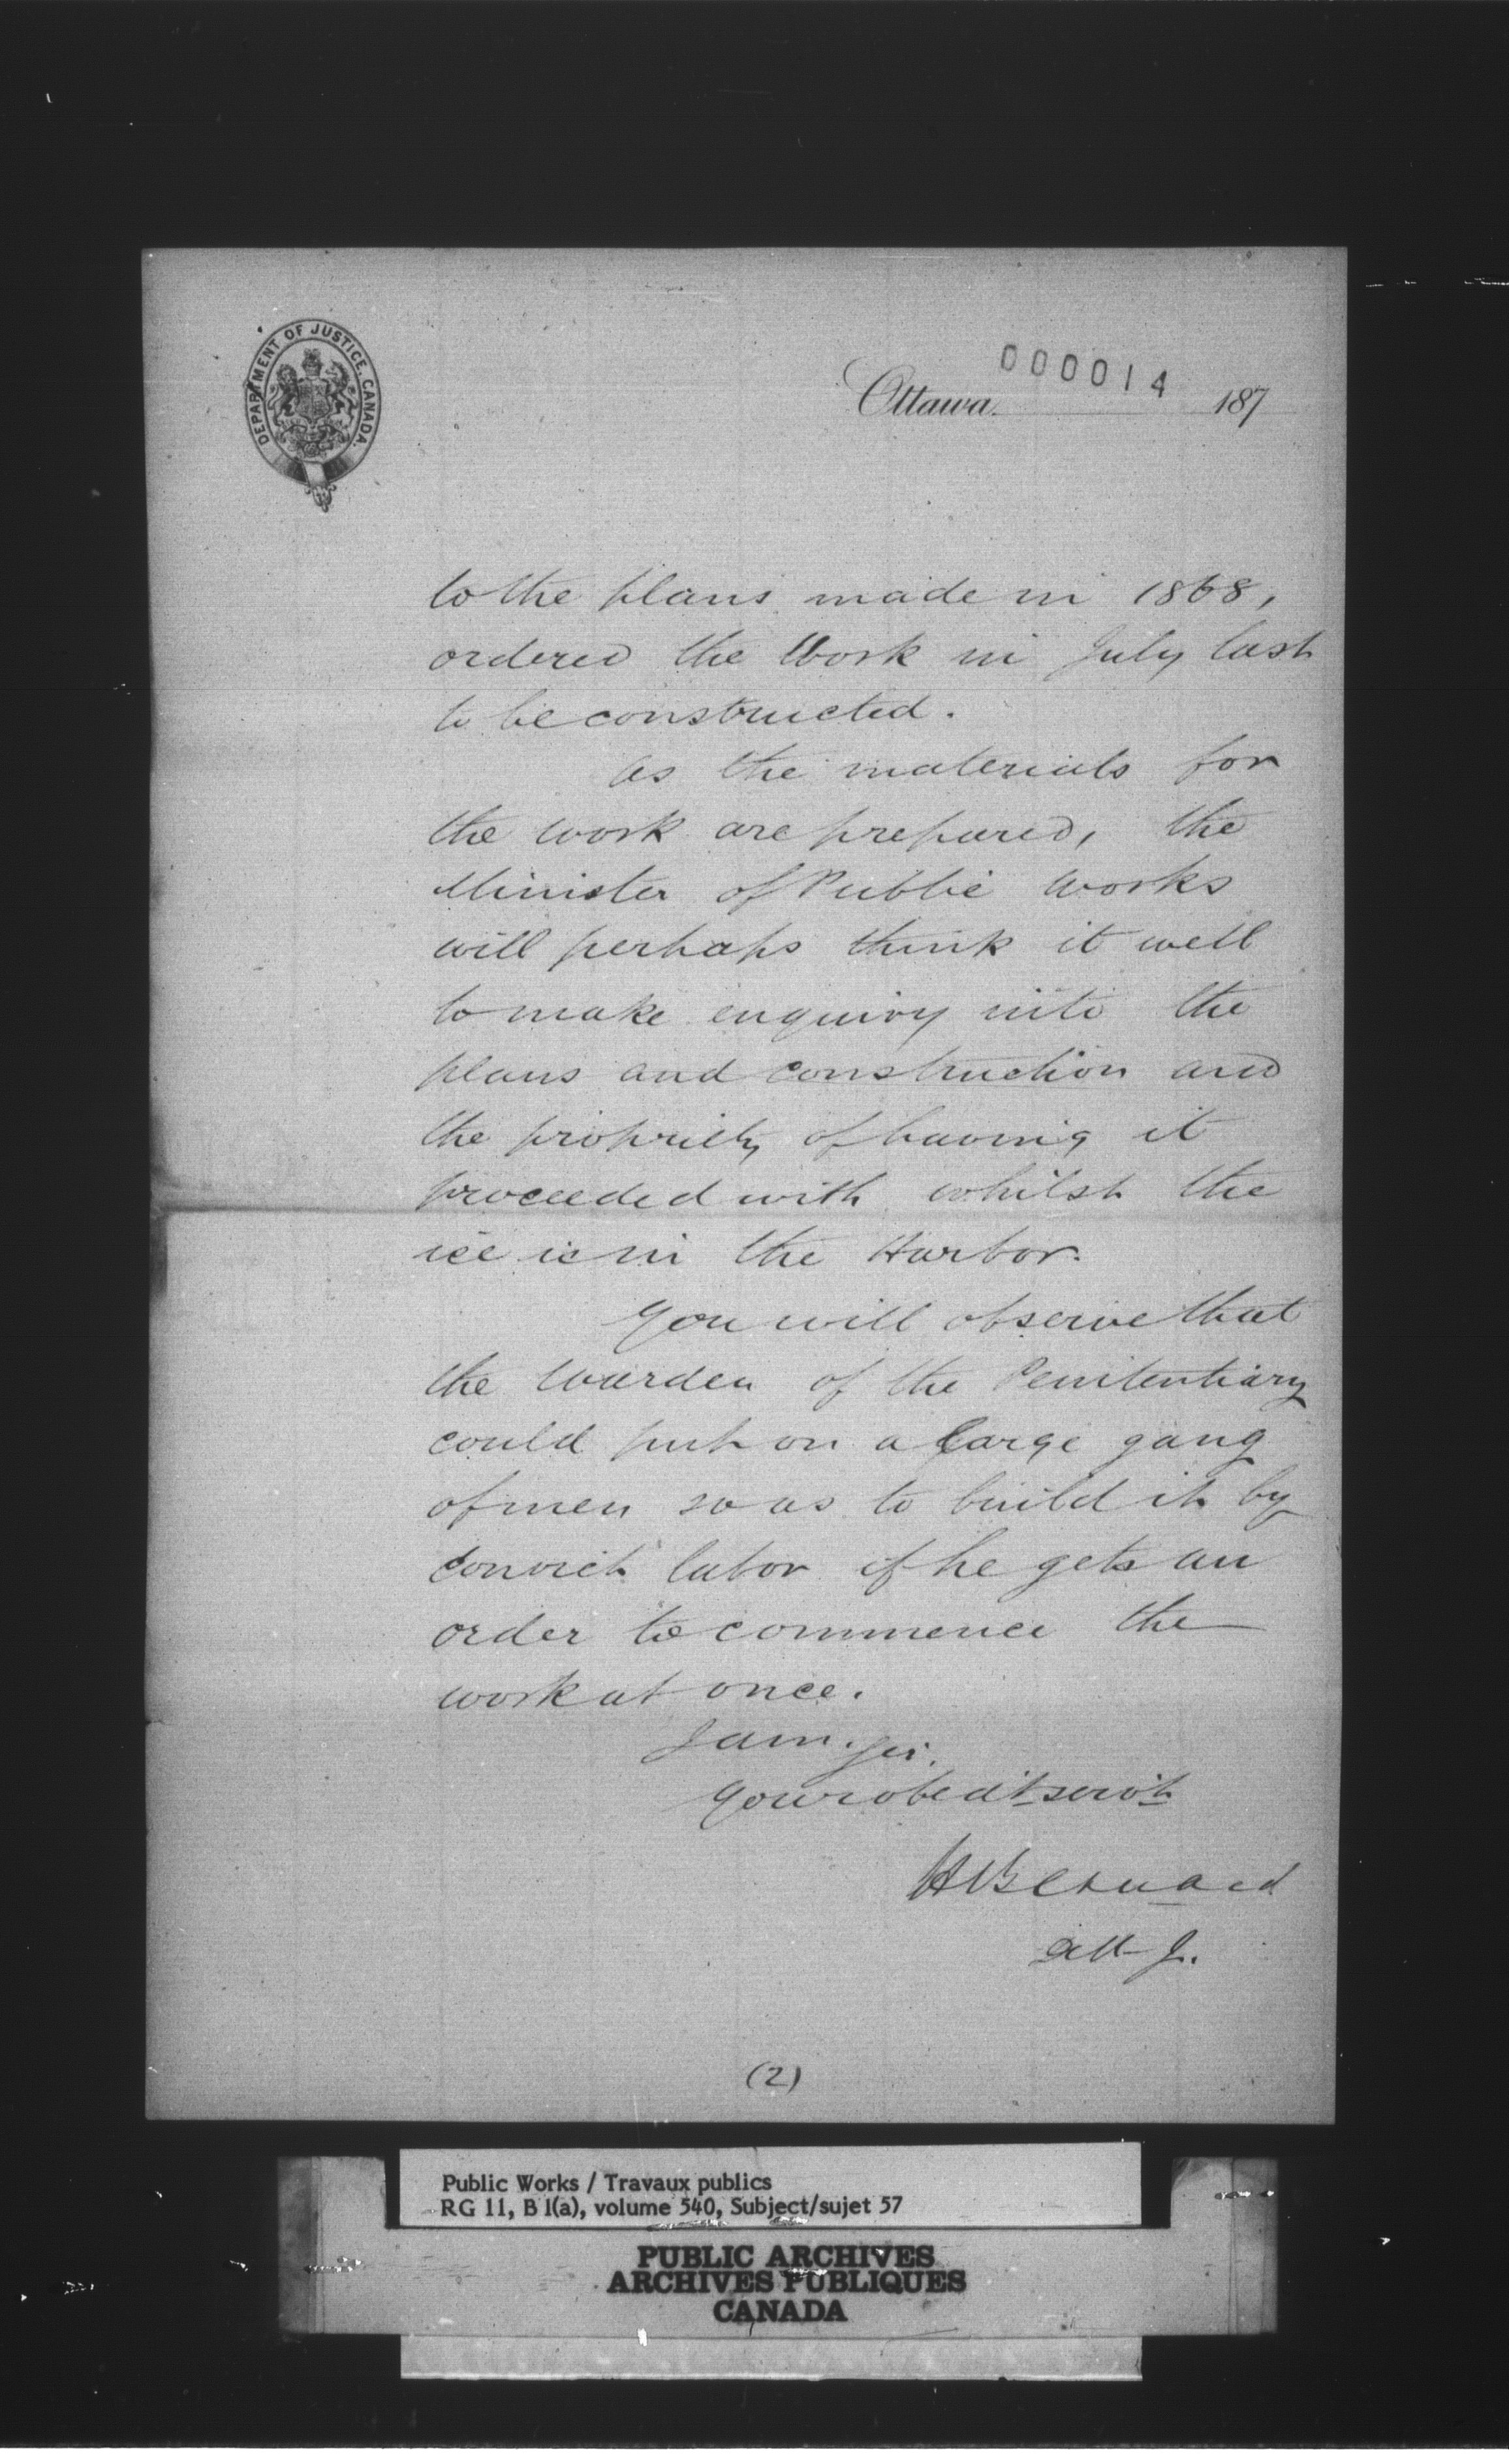 DEPARTMENT OF JUSTICE, CANADA.
000014
Ottawa. 187
to the plans made in 1868,
ordered the Work in July last
to be constructed.
As the materials for
the work are prepared, the
Minister of Public Works
will perhaps think it well
to make enquiry into the
plans and construction and
the propriety of having it
proceeded with whilst the
ice is in the Harbor.
You will observe that
the Warden of the Penitentiary
could put on a large gang
of men so as to build it by
convict labor if he gets an
order to commence the
work at once.
I am, Sir.
Your obedt servt
H Bernard
(2)
Public Works / Travaux publics
RG 11, B 1(a), volume 540, Subject/sujet 57
PUBLIC ARCHIVES
ARCHIVES PUBLIQUES
CANADA